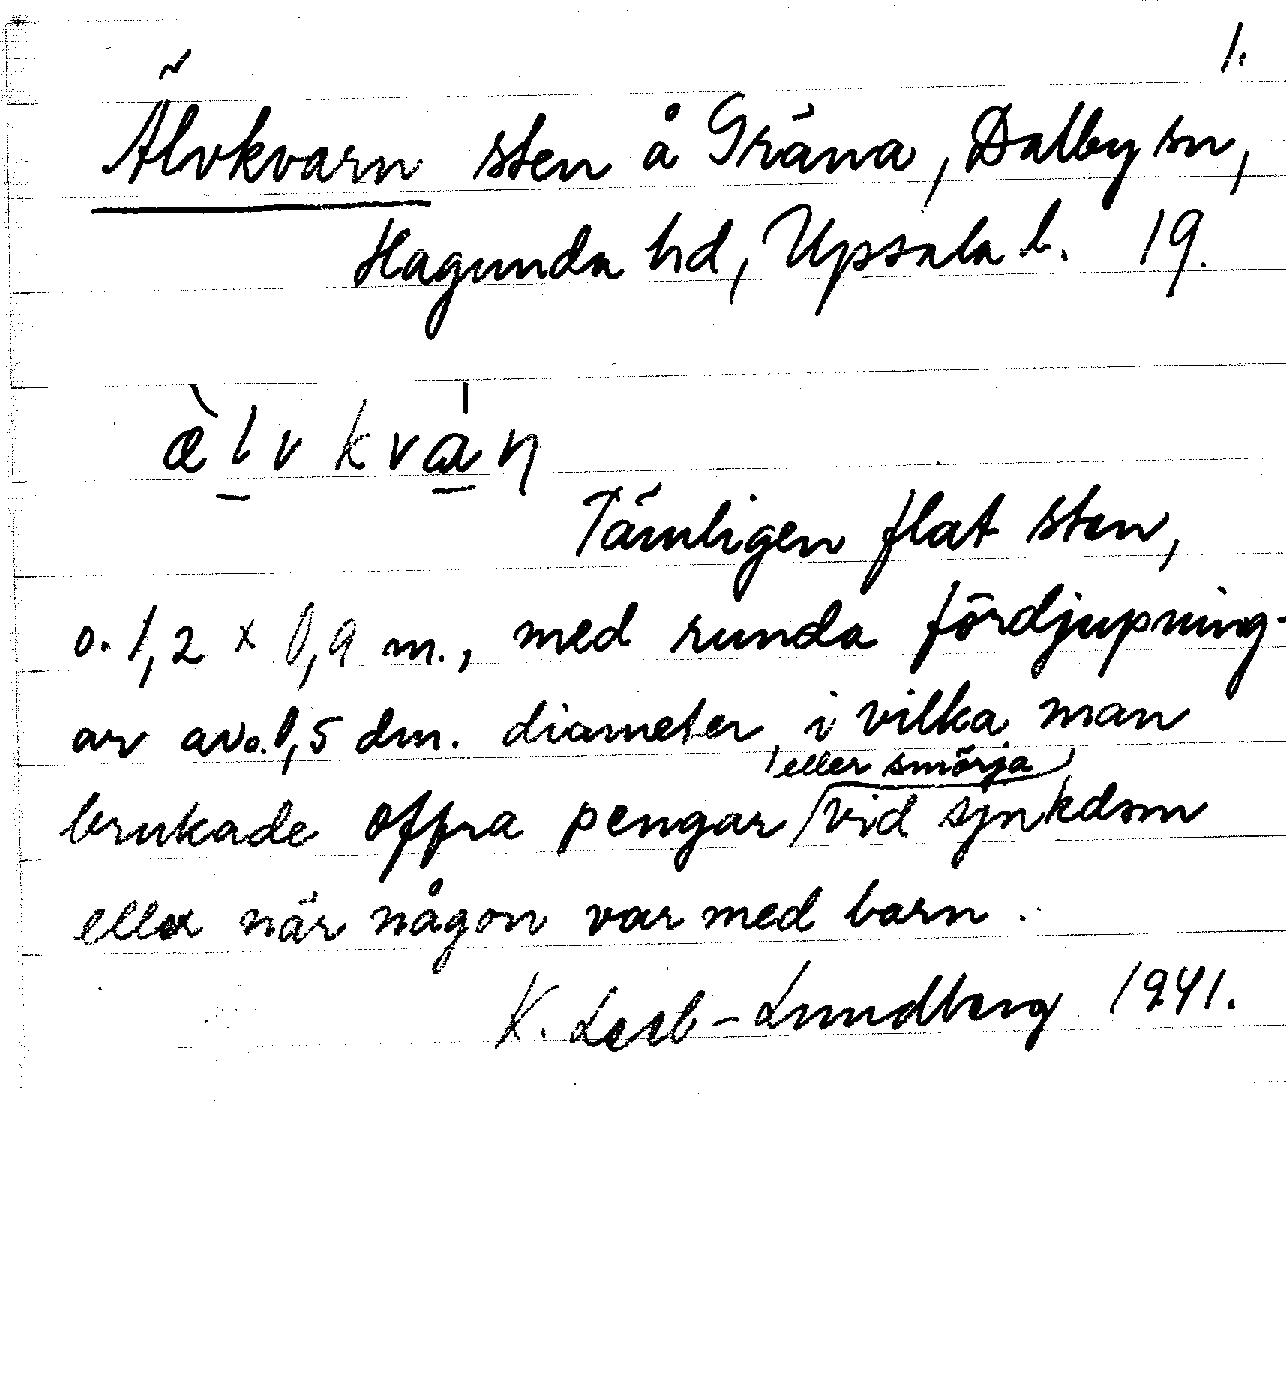 1.
Älvkvarn sten å Gräna, Dalby sn,
Hagunda hd, Upsala l. 19.
æ̀lvkvàɳ
Tämligen flat sten,
o. 1,2 x 0,9 m., med runda fördjupning-
ar av o. 0,5 dm. diameter, i vilka man
(eller smörja)
brukade offra pengar vid sjukdom
eller när någon var med barn.
K. Lerb-Lundberg 1941.